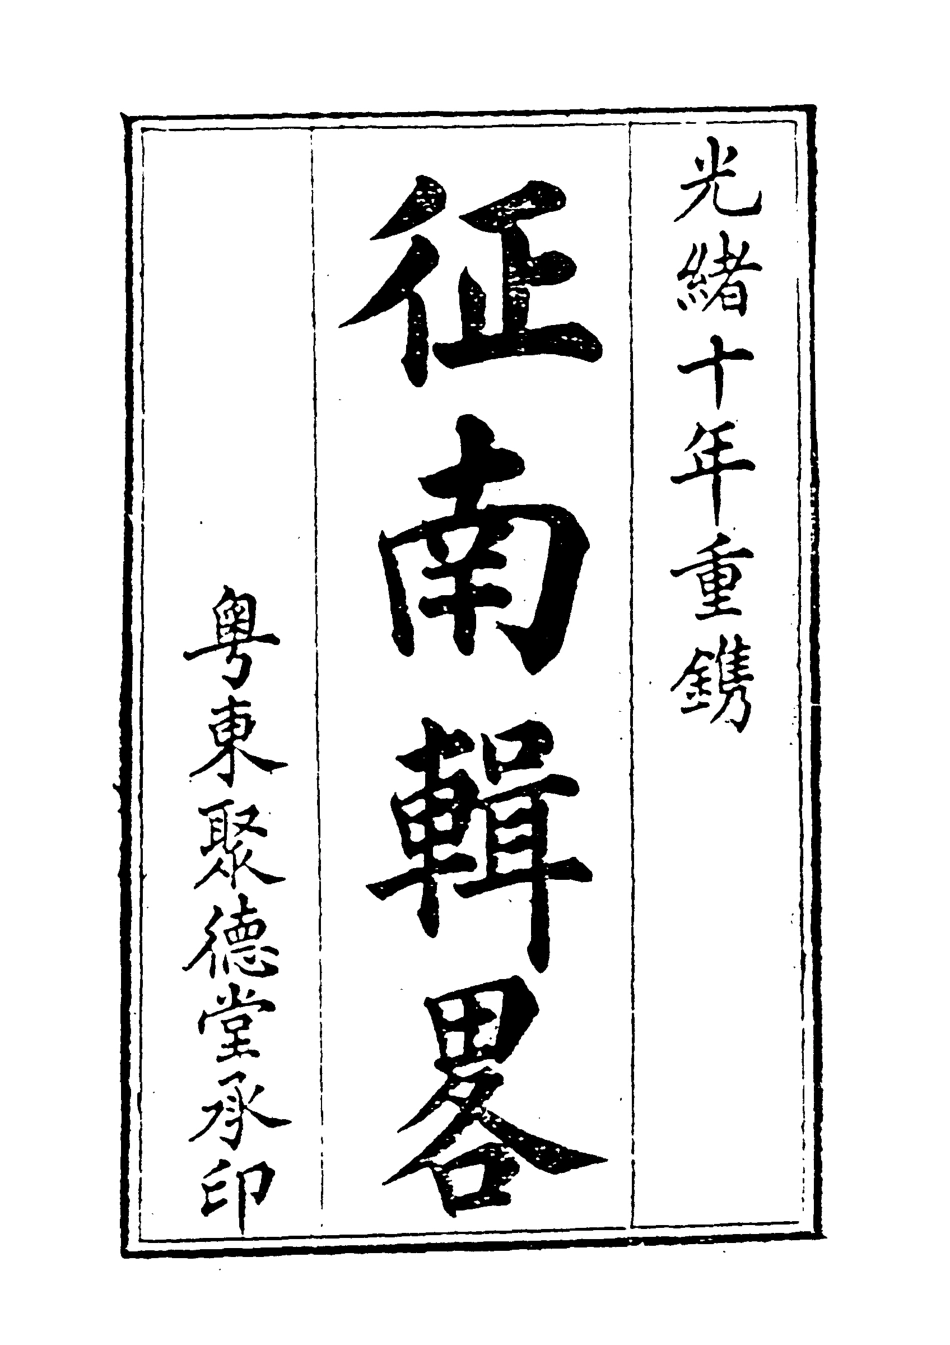 光緒十年重鐫
征南輯畧
粵東聚德堂承印